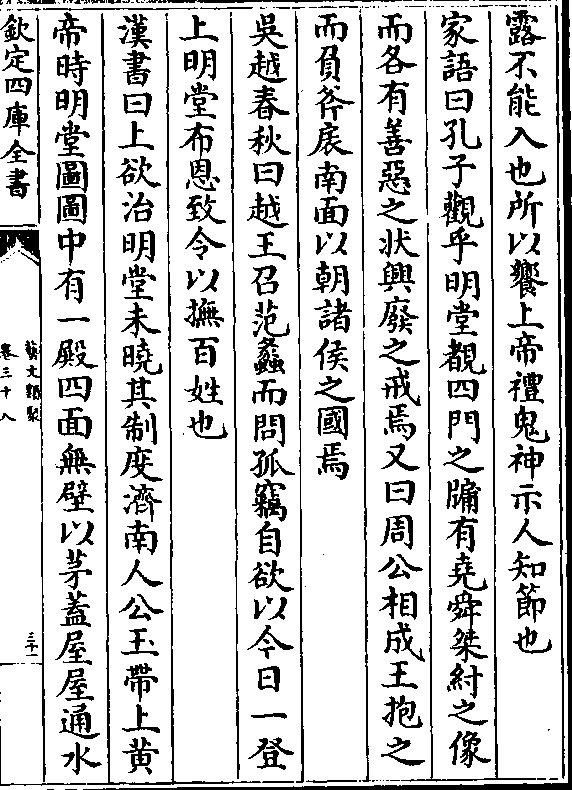 露不能入也所以饗上帝禮鬼神示人知節也
家語曰孔子觀乎明堂覩四門之牗有堯舜桀紂之像
而各有善惡之狀興廢之戒焉又曰周公相成王抱之
而負斧扆南面以朝諸侯之國焉
吳越春秋曰越王召范蠡而問孤竊自欲以今日一登
上明堂布恩致令以撫百姓也
漢書曰上欲治明堂未曉其制度濟南人公玉帶上黄
帝時明堂圖圖中有一殿四面無壁以茅蓋屋屋通水
欽定四庫全書
藝文類聚
卷三十八
三十一